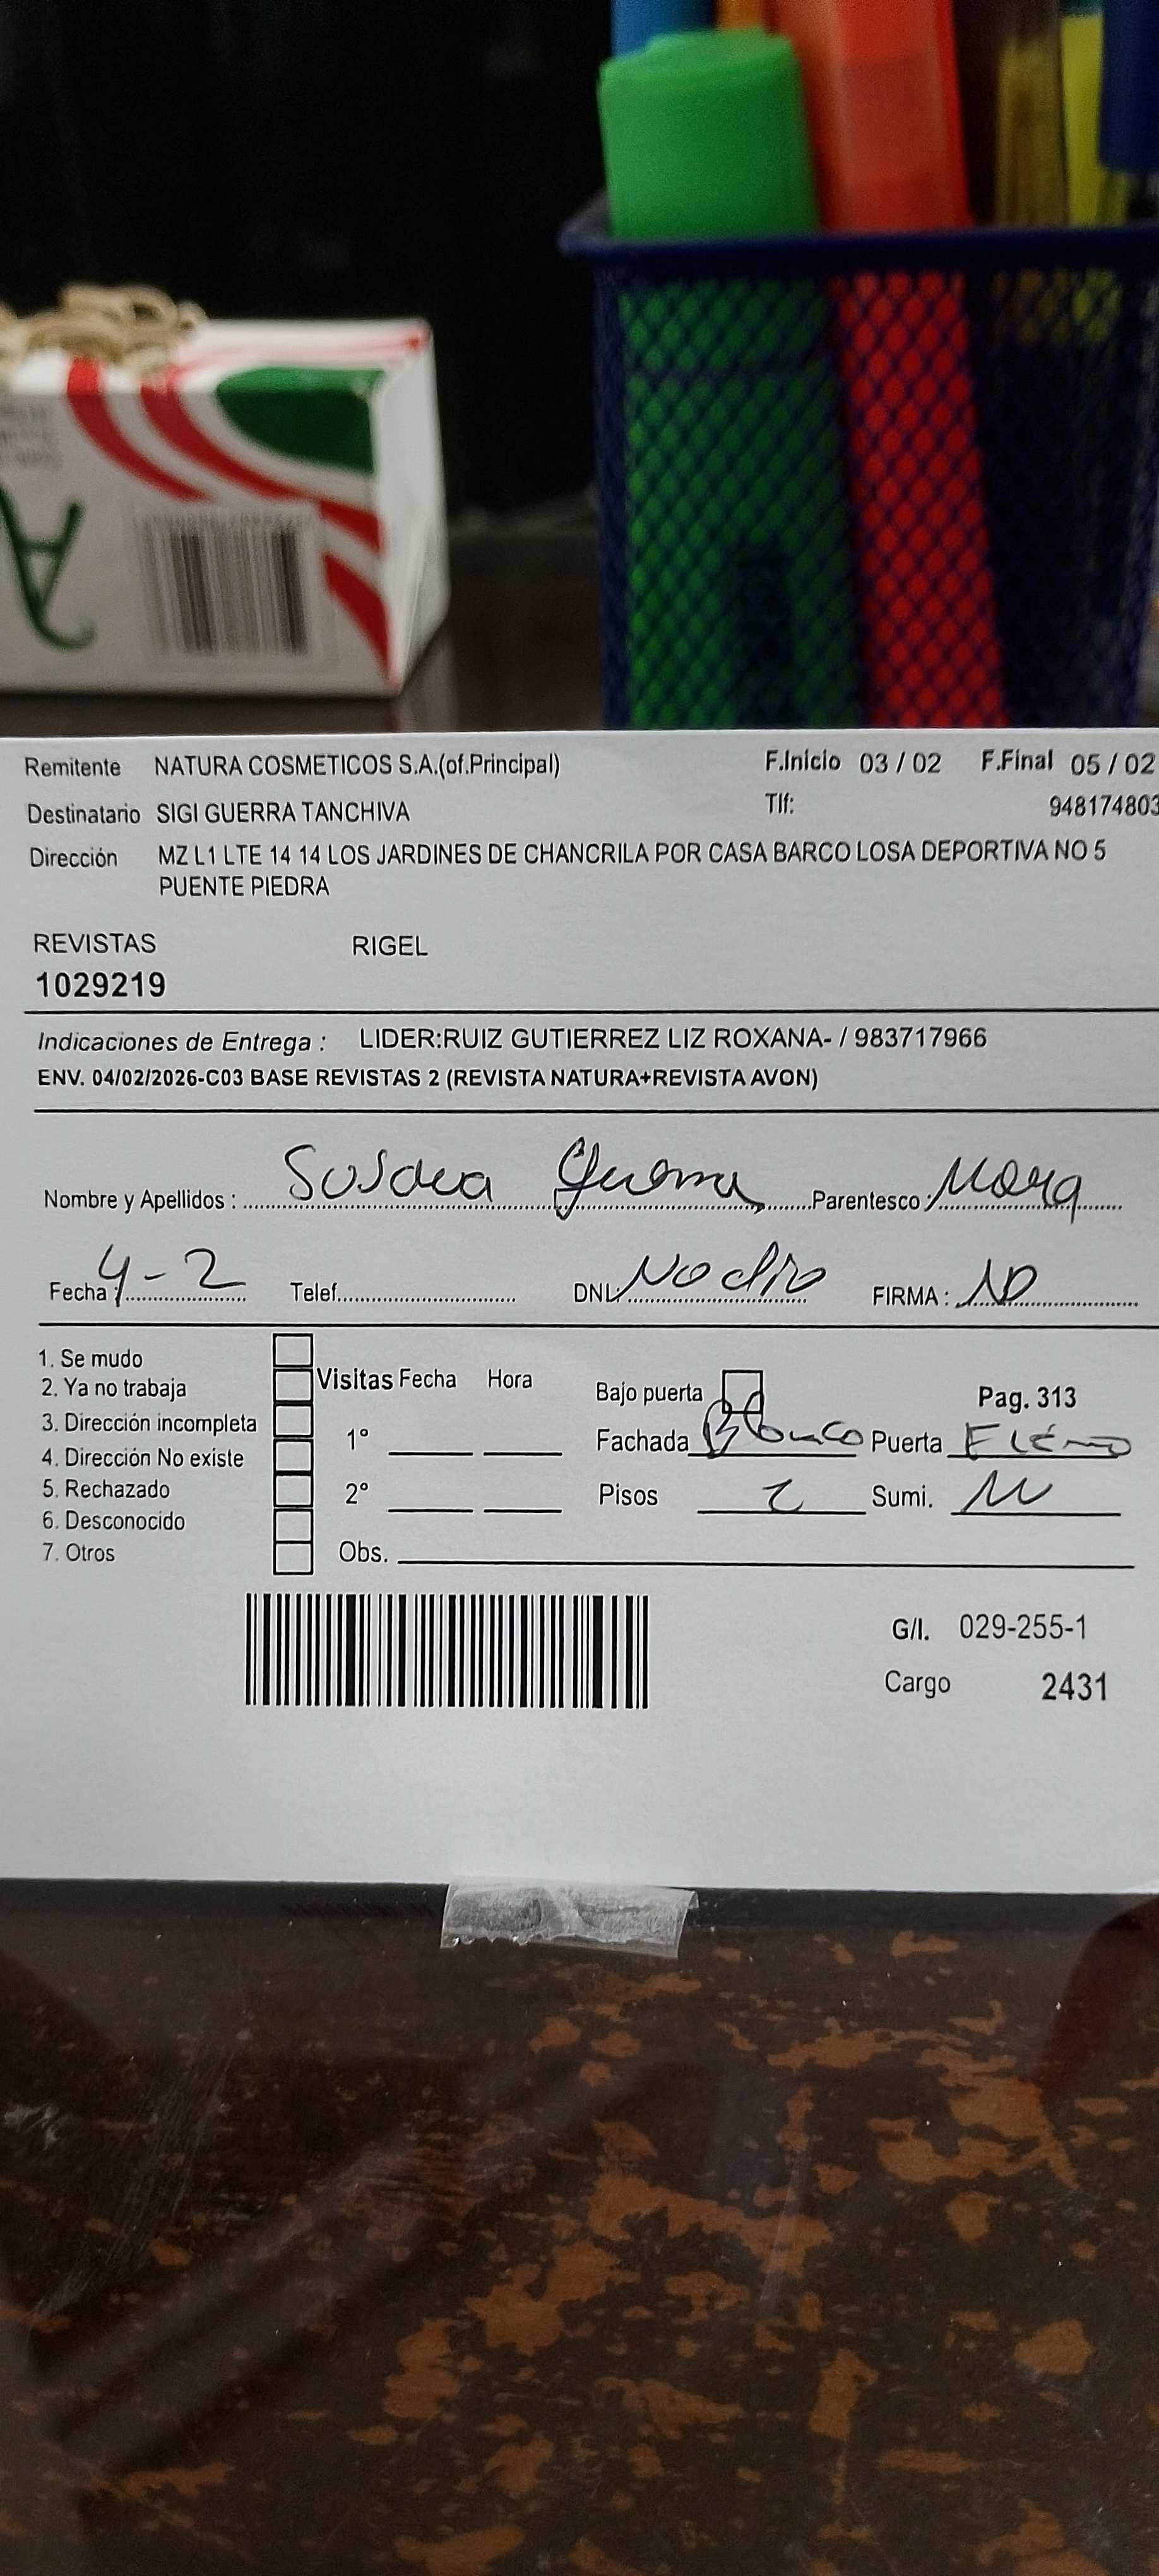 Remitente NATURA COSMETICOS S.A.(of.Principal) F.Inicio 03 / 02 F.Final 05 / 02
Destinatario SIGI GUERRA TANCHIVA Tlf: 948174803
Dirección MZ L1 LTE 14 14 LOS JARDINES DE CHANCRILA POR CASA BARCO LOSA DEPORTIVA NO 5
PUENTE PIEDRA
REVISTAS RIGEL
1029219
Indicaciones de Entrega : LIDER:RUIZ GUTIERREZ LIZ ROXANA- / 983717966
ENV. 04/02/2026-C03 BASE REVISTAS 2 (REVISTA NATURA+REVISTA AVON)
Nombre y Apellidos : Parentesco :
Fecha : 4-2 Telef. DNI: No dio FIRMA : ND
1. Se mudo
2. Ya no trabaja Visitas Fecha Hora Bajo puerta Pag. 313
3. Dirección incompleta 1° Fachada Blanco Puerta
4. Dirección No existe
5. Rechazado 2° Pisos 2 Sumi.
6. Desconocido
7. Otros Obs.
G/I. 029-255-1
Cargo 2431